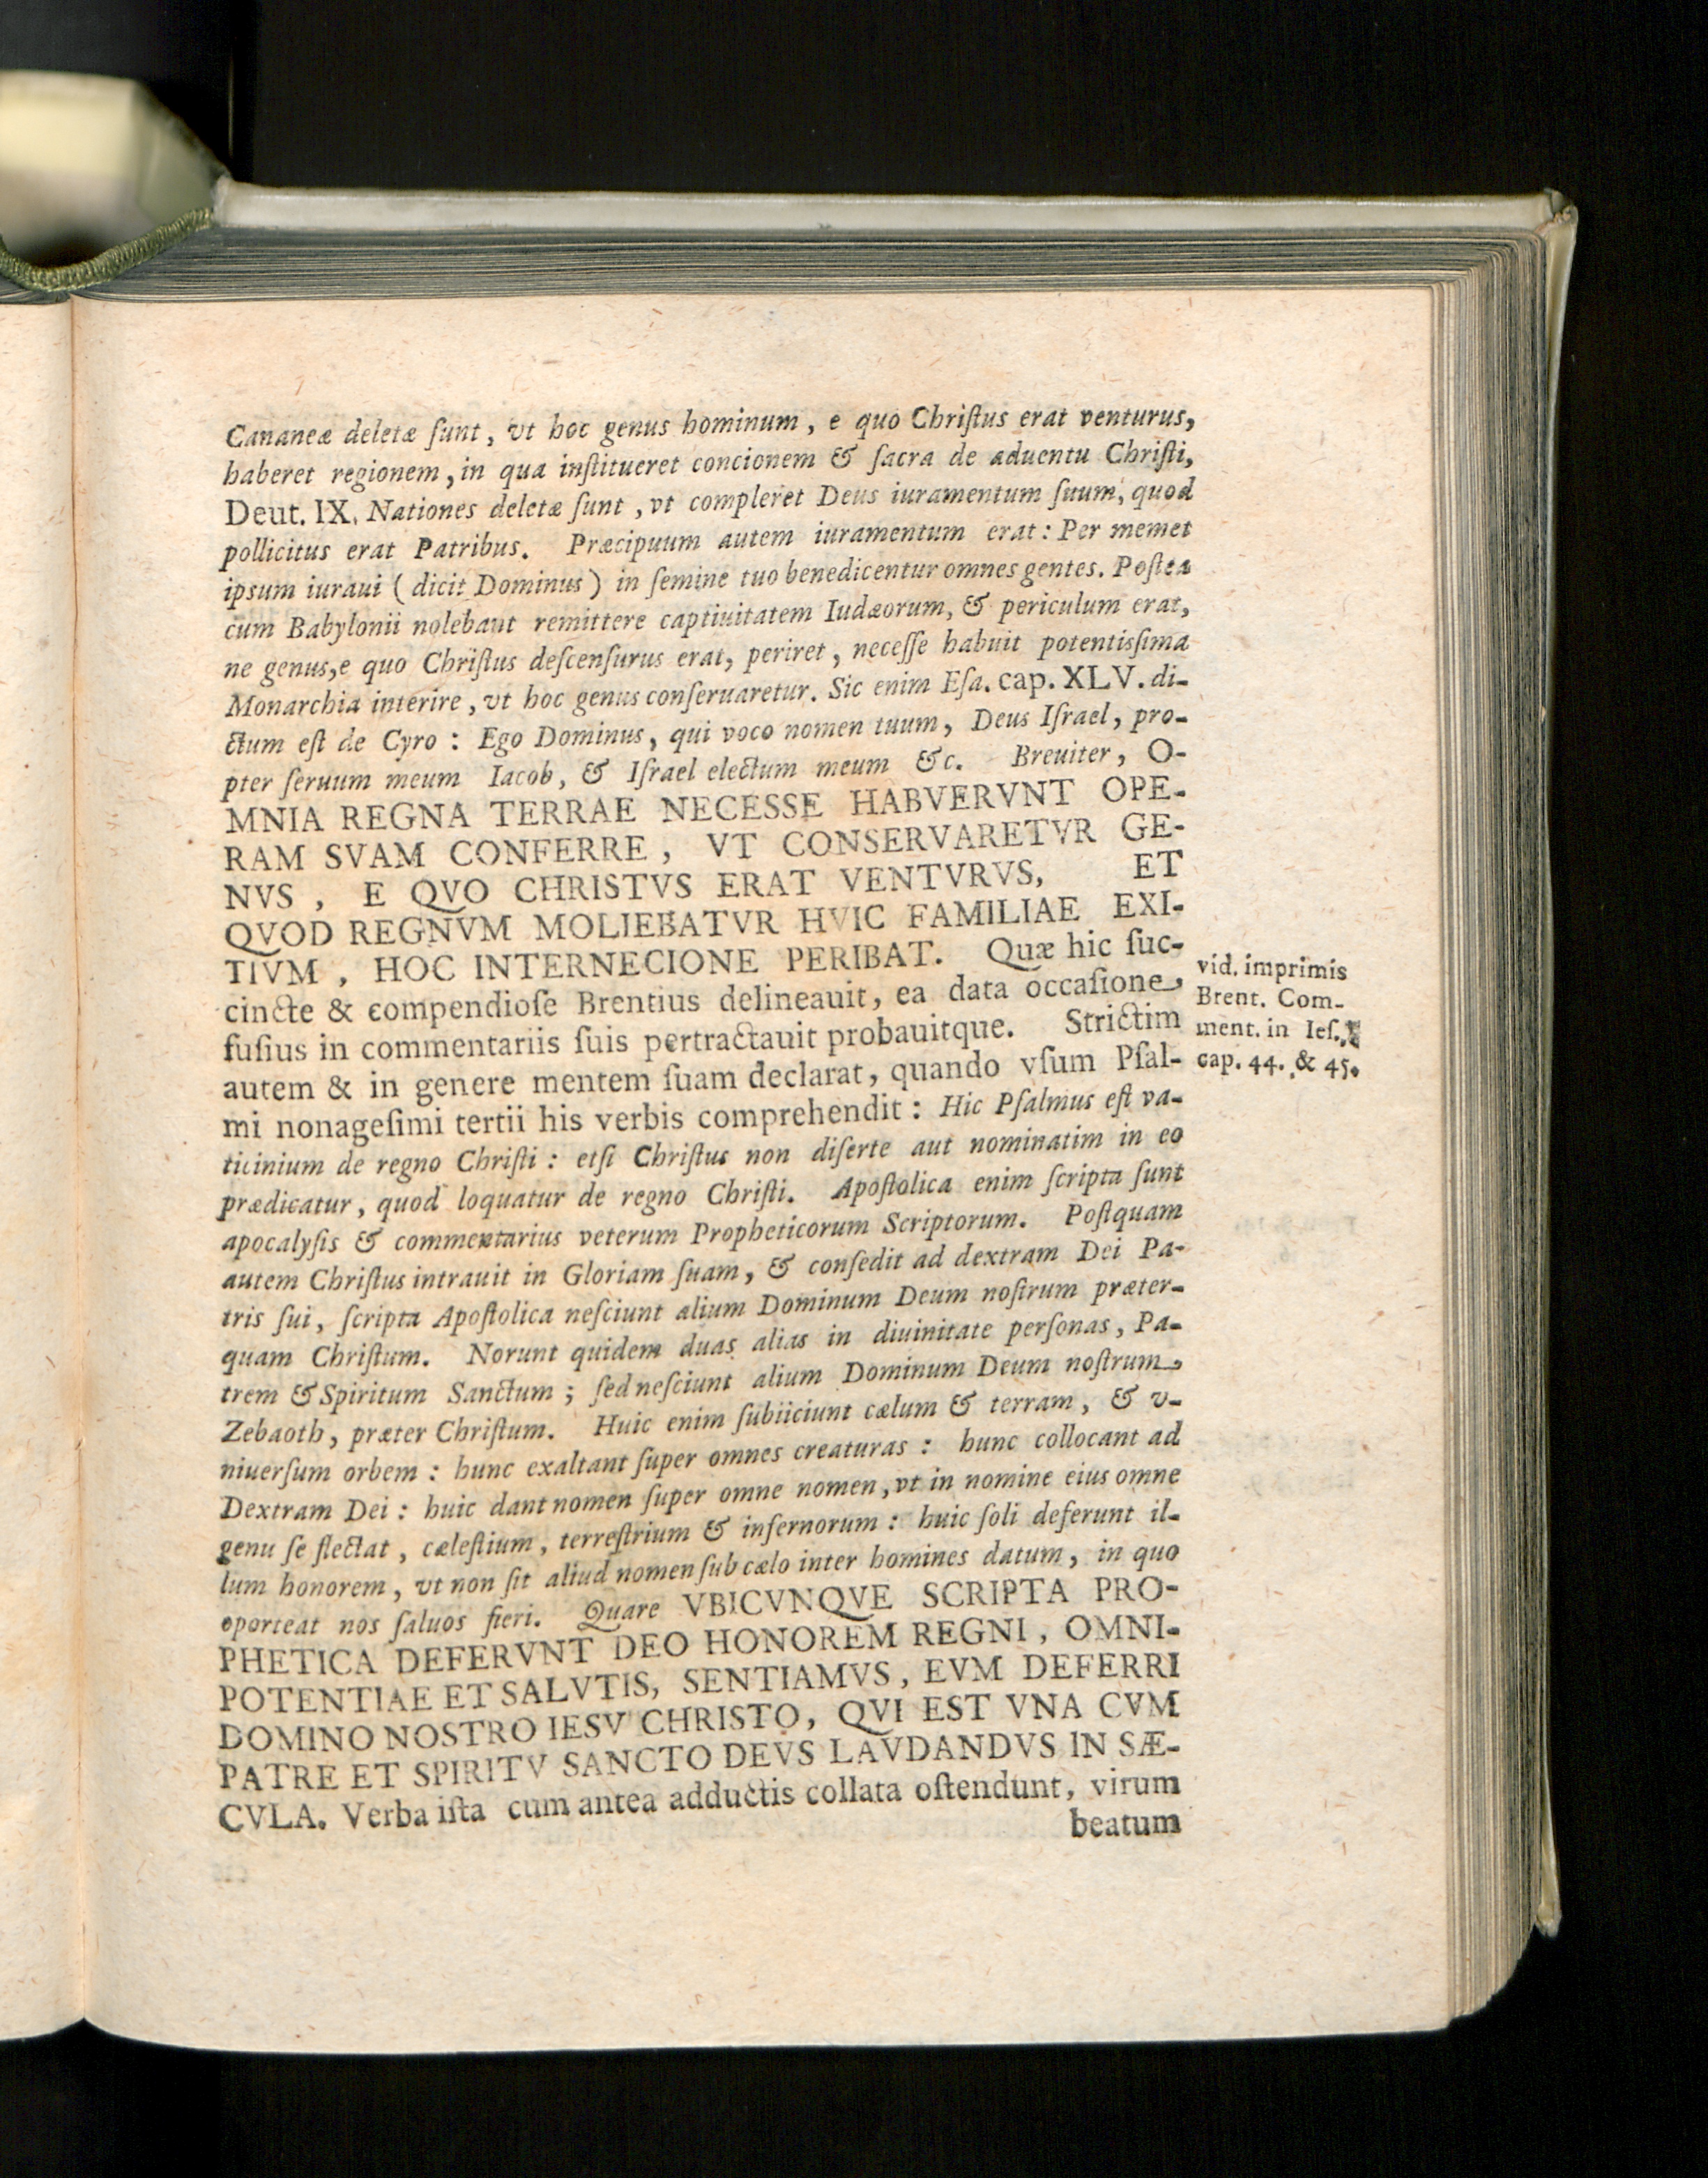 Cananeæ deletæ ſunt, vt hoc genus hominum, e quo Chriſtus erat venturus,
haberet regionem, in qua inſtitueret concionem & ſacra de aduentu Chriſti,
Deut. IX. Nationes deletæ ſunt, vt compleret Deus iuramentum ſuum, quod
pollicitus erat Patribus. Præcipuum autem iuramentum erat: Per memet
ipsum iuraui (dicit Dominus) in ſemine tuo benedicentur omnes gentes. Poſtea
cum Babylonii nolebant remittere captiuitatem Iudæorum, & periculum erat,
ne genus, e quo Chriſtus deſcenſurus erat, periret, neceſſe habuit potentisſima
Monarchia interire, vt hoc genus conſeruaretur. Sic enim Eſa. cap. XLV. di-
ctum eſt de Cyro: Ego Dominus, qui voco nomen tuum, Deus Iſrael, pro-
pter ſeruum meum Iacob, & Iſrael electum meum &c. Breuiter, O-
MNIA REGNA TERRAE NECESSE HABVERVNT OPE-
RAM SVAM CONFERRE, VT CONSERVARETVR GE-
NVS, E QVO CHRISTVS ERAT VENTVRVS, ET
QVOD REGNVM MOLIEBATVR HVIC FAMILIAE EXI-
TIVM, HOC INTERNECIONE PERIBAT. Quæ hic ſuc-
cincte & compendioſe Brentius delineauit, ea data occaſione,
fuſius in commentariis ſuis pertractauit probauitque. Strictim
autem & in genere mentem ſuam declarat, quando vſum Pſal-
mi nonageſimi tertii his verbis comprehendit: Hic Pſalmus eſt va-
ticinium de regno Chriſti: etſi Chriſtus non diſerte aut nominatim in eo
prædicatur, quod loquatur de regno Chriſti. Apoſtolica enim ſcripta ſunt
apocalyſis & commentarius veterum Propheticorum Scriptorum. Poſtquam
autem Chriſtus intrauit in Gloriam ſuam, & conſedit ad dextram Dei Pa-
tris ſui, ſcripta Apoſtolica neſciunt alium Dominum Deum noſtrum præter-
quam Chriſtum. Norunt quidem duas alias in diuinitate perſonas, Pa-
trem & Spiritum Sanctum; ſed neſciunt alium Dominum Deum noſtrum,
Zebaoth, præter Chriſtum. Huic enim ſubiiciunt cælum & terram, & v-
niuerſum orbem: hunc exaltant ſuper omnes creaturas: hunc collocant ad
Dextram Dei: huic dant nomen ſuper omne nomen, vt in nomine eius omne
genu ſe flectat, cæleſtium, terreſtrium & infernorum: huic ſoli deferunt il-
lum honorem, vt non ſit aliud nomen ſub cælo inter homines datum, in quo
oporteat nos ſaluos fieri. Quare VBICVNQVE SCRIPTA PRO-
PHETICA DEFERVNT DEO HONOREM REGNI, OMNI-
POTENTIAE ET SALVTIS, SENTIAMVS, EVM DEFERRI
DOMINO NOSTRO IESV CHRISTO, QVI EST VNA CVM
PATRE ET SPIRITV SANCTO DEVS LAVDANDVS IN SÆ-
CVLA. Verba iſta cum antea adductis collata oſtendunt, virum
beatum
vid. imprimis
Brent. Com-
ment. in Ieſ.
cap. 44. & 45.